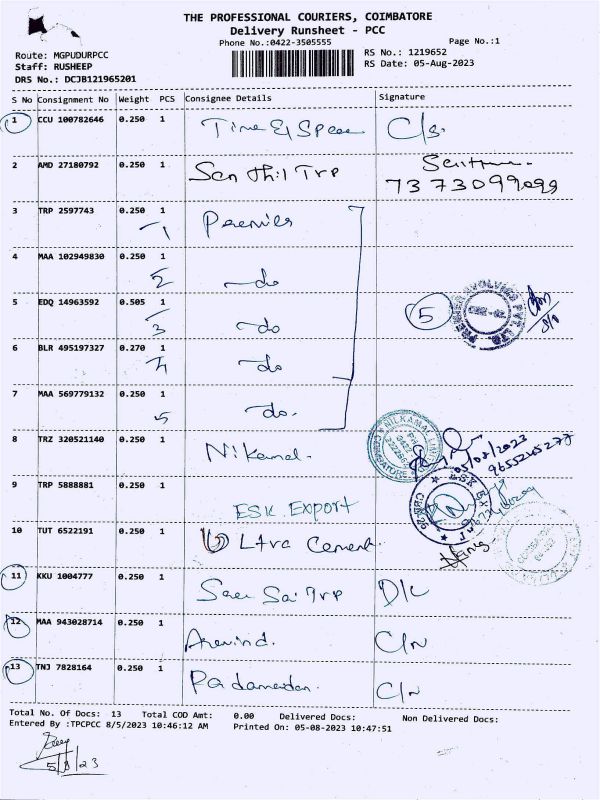 THE PROFESSIONAL COURIERS, COIMBATORE
Delivery Runsheet - PCC
Phone No.:0422-3505555
Page No.:1
Route: MGPUDURPCC
RS No.: 1219652
Staff: RUSHEEP
RS Date: 05-Aug-2023
DRS No.: DCJB121965201
S No Consignment No Weight PCS Consignee Details Signature
1 CCU 100782646 0.250 1 Time & Space C/s.
2 AMD 27180792 0.250 1 Senthil Trp
7373099099
3 TRP 2597743 0.250 1 Premier
1
4 MAA 102949830 0.250 1 do
2
5 EDQ 14963592 0.505 1 do 5
3
6 BLR 495197327 0.270 1 do
4
7 MAA 569779132 0.250 1 do.
5
8 TRZ 320521140 0.250 1 Nikamal. NILKAMAL COIMBATORE
05/08/2023
9655245277
9 TRP 5888881 0.250 1 ESK Export
10 TUT 6522191 0.250 1 Ltra Cement.
11 KKU 1004777 0.250 1 Sai Trp D/L
12 MAA 943028714 0.250 1 Aravind. C/N
13 TNJ 7828164 0.250 1 C/N
Total No. Of Docs: 13 Total COD Amt: 0.00 Delivered Docs: Non Delivered Docs:
Entered By :TPCPCC 8/5/2023 10:46:12 AM Printed On: 05-08-2023 10:47:51
5/8/23